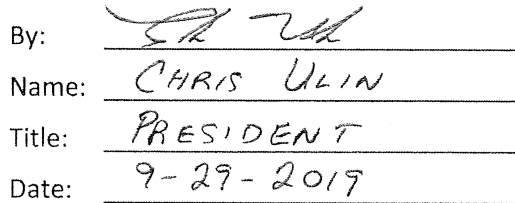 By:
Name: CHRIS ULIN
Title: PRESIDENT
Date: 9-29-2019